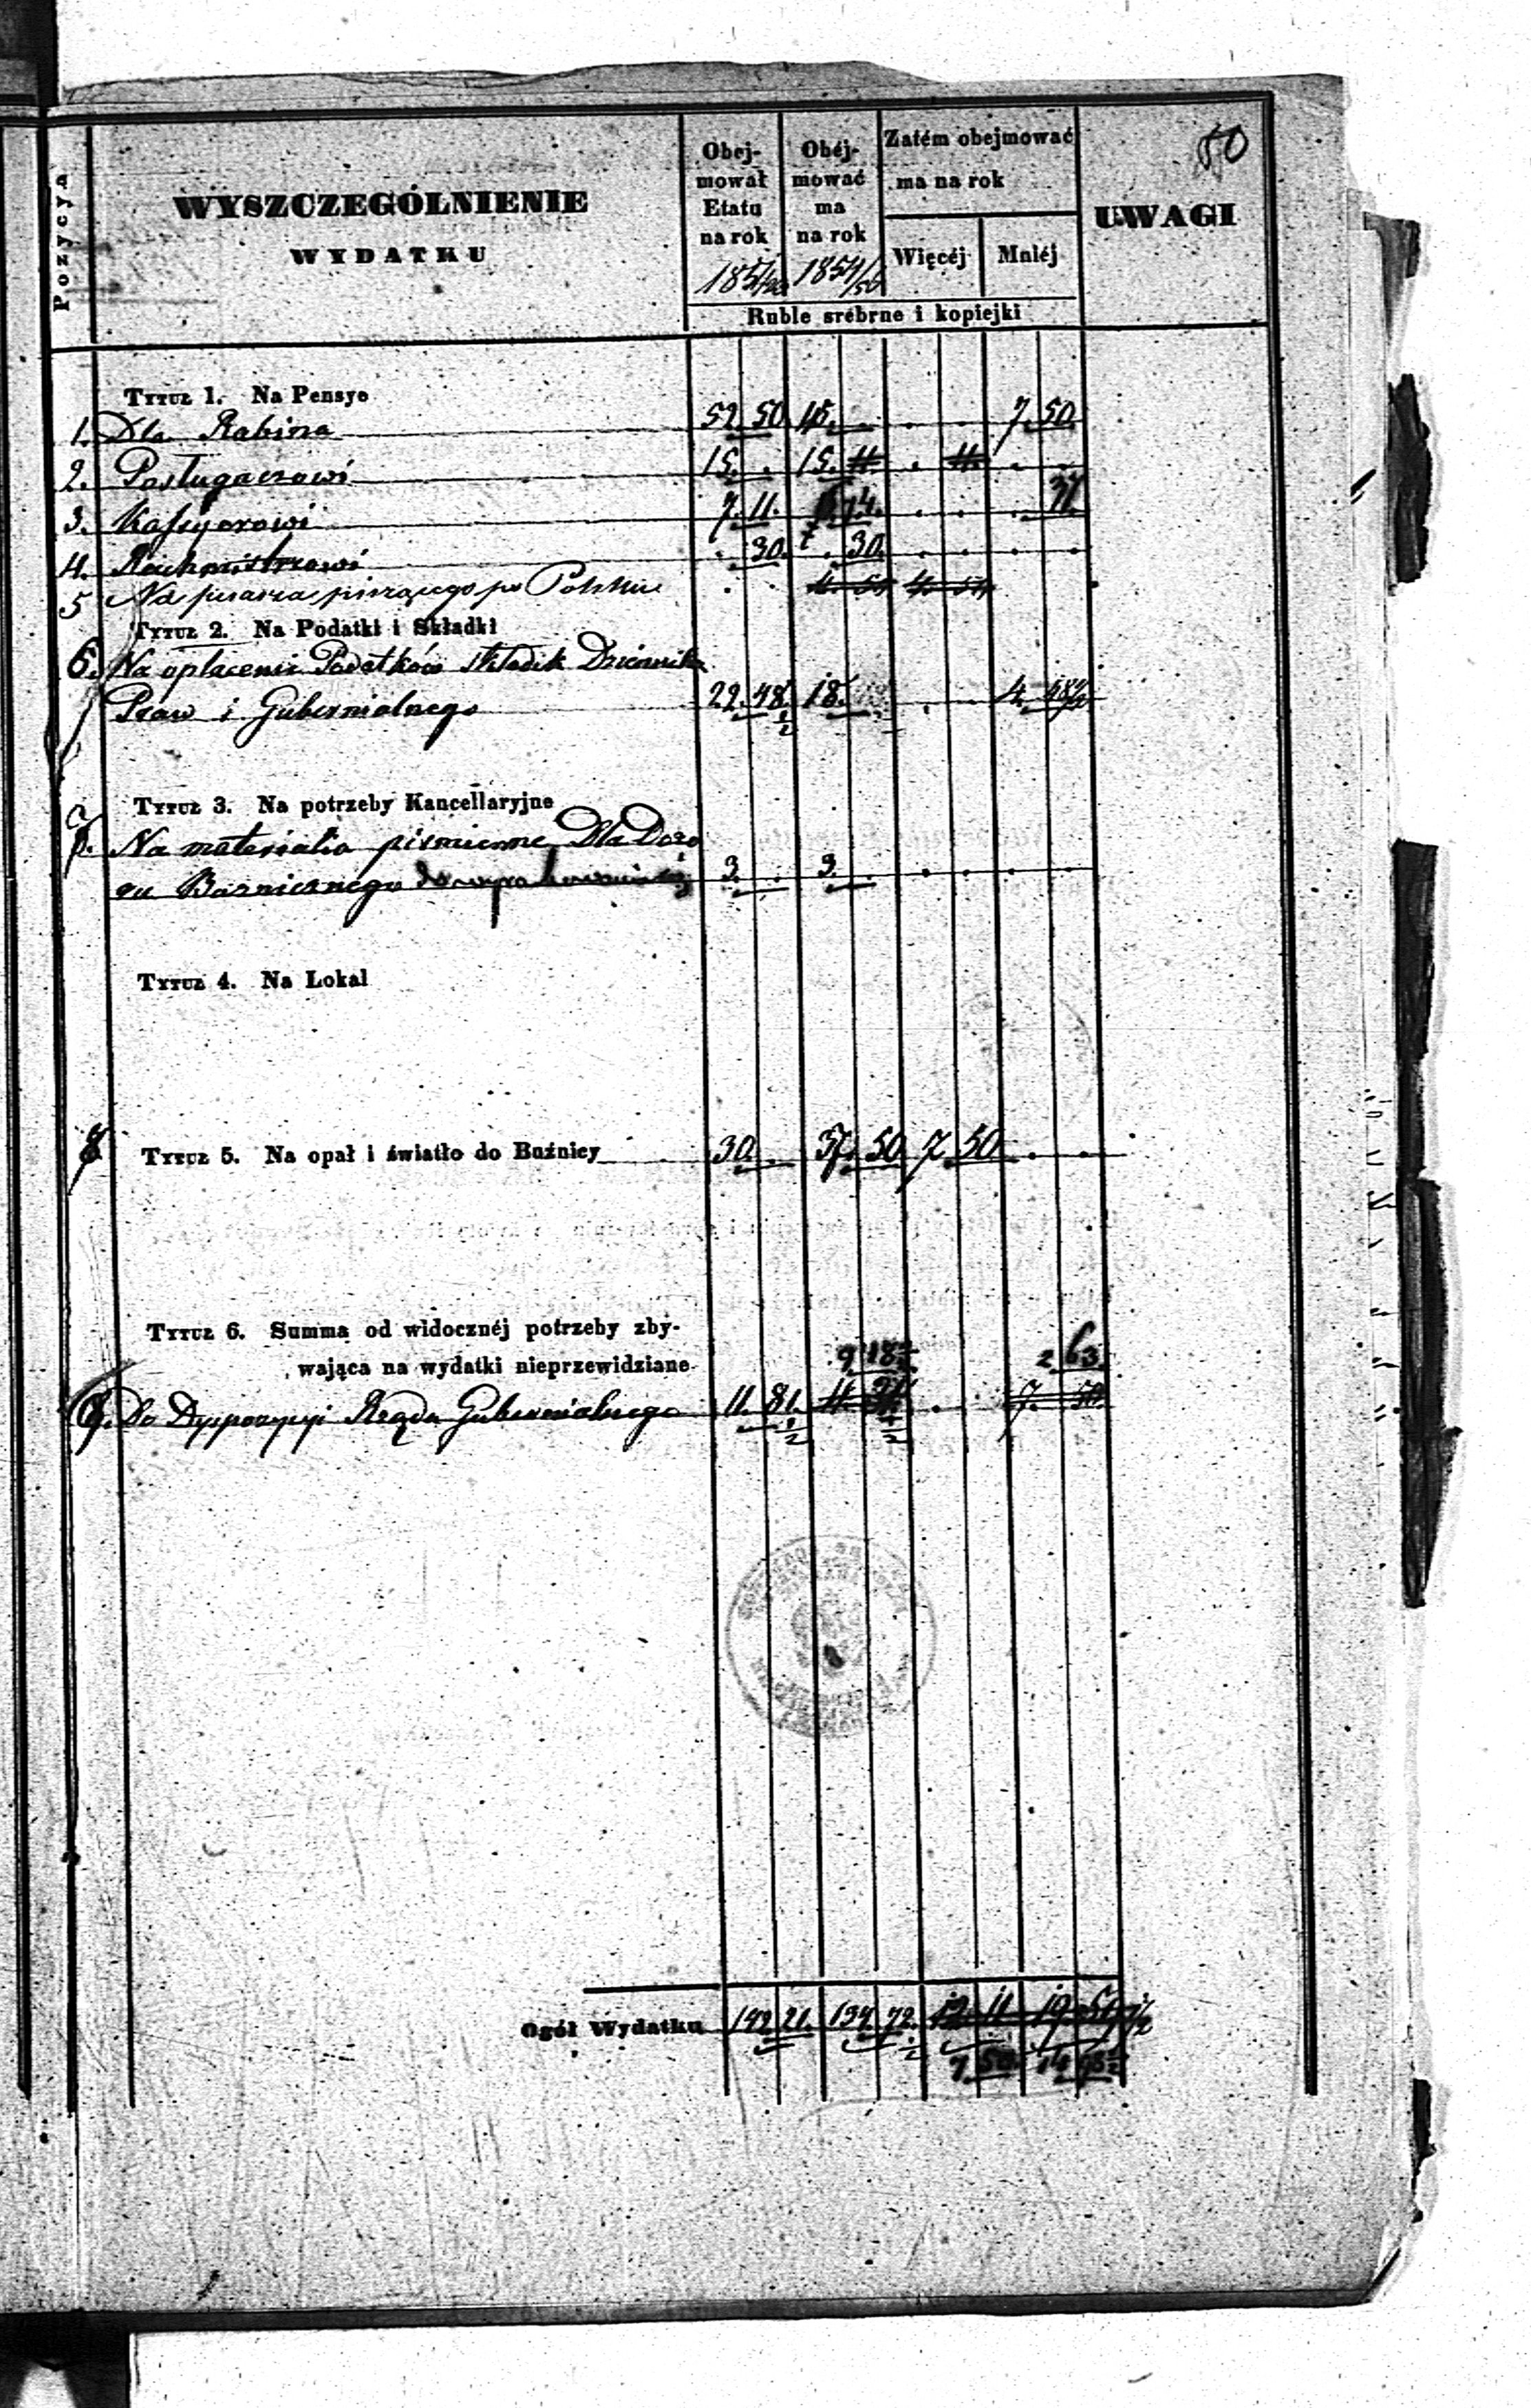 50
Pozycya
WYSZCZEGÓLNIENIE
WYDATKU
Obej-
mował
Etatu
na rok
1851/
Obéj-
mować
ma
na rok
1854/56
Zatém obejmować
ma na rok
Więcéj
Mniéj
UWAGI
Ruble srébrne i kopiejki
Tytuł 1. Na Pensye
1. Dla Rabina 52. 50. 45. 7. 50.
2. Posługaczowi 15. 15. 11. 11.
3. Kassyerowi 7. 11. 6. 74. 37.
4. Rachmistrzowi 30. 30.
5 Na pisarza piszącego po Polsku
Tytuł 2. Na Podatki i Składki
6. Na opłacenie Podatków składek Dziennika
Praw i Gubernialnego 22. 48 1/2 18. 4. 48 1/2
Tytuł 3. Na potrzeby Kancellaryjne
7. Na materialia piśmienne Dla Dozo
ru Bożnicznego 3. 3.
Tytuł 4. Na Lokal
8 Tytuł 5. Na opał i światło do Buźnicy 30. 37. 50 7 50
Tytuł 6. Summa od widocznéj potrzeby zby-
wająca na wydatki nieprzewidziane
9 18 1/2 2 63
9. Do Dyspozycyi Rządu Gubernialnego 11. 81 1/2 7. 50
Ogół Wydatku 142 21. 134 72 1/2 12 11 19
7 50